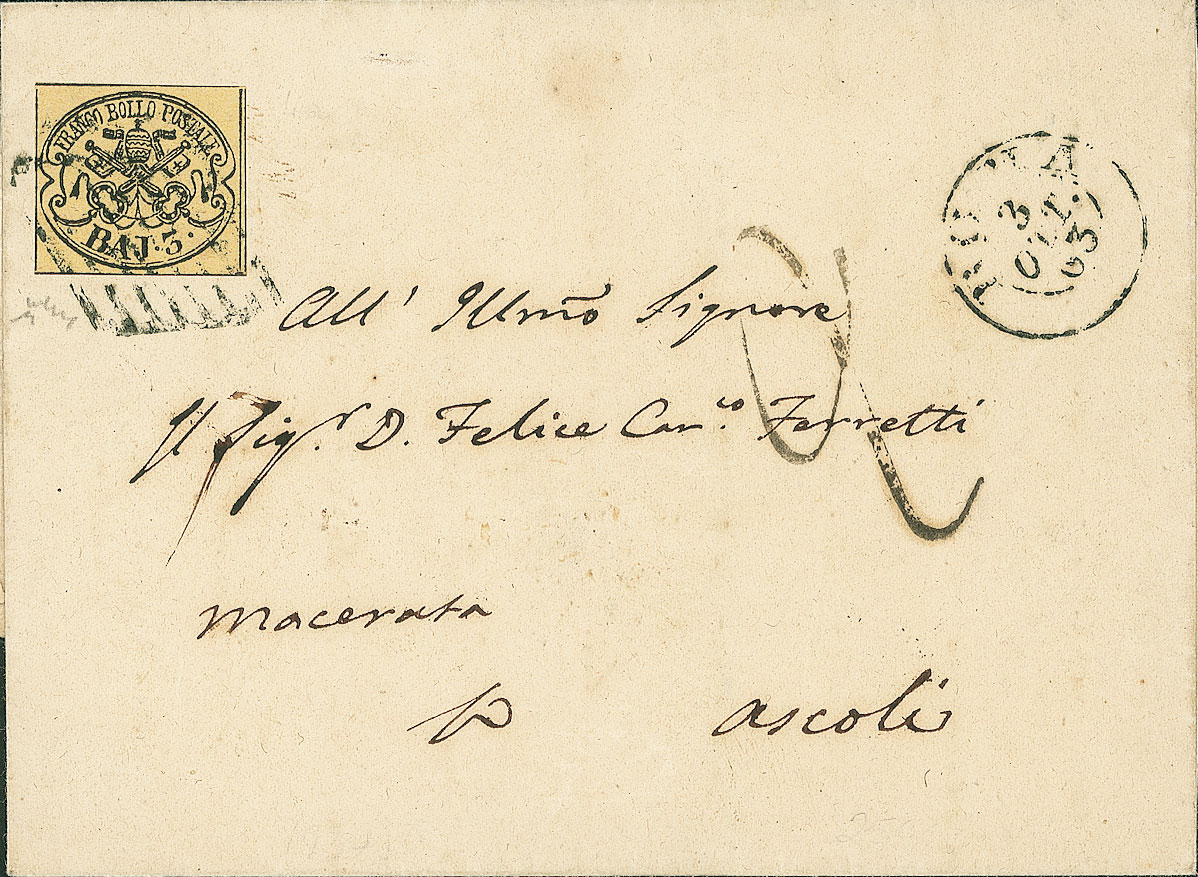 FRANCO BOLLO POSTALE
BAJ. 3.
ROMA
3
OTT.
63
All' Illmõ Signore
Il Sigʳ. D. Felice Canᶜᵒ. Ferretti
Macerata
p ascoli